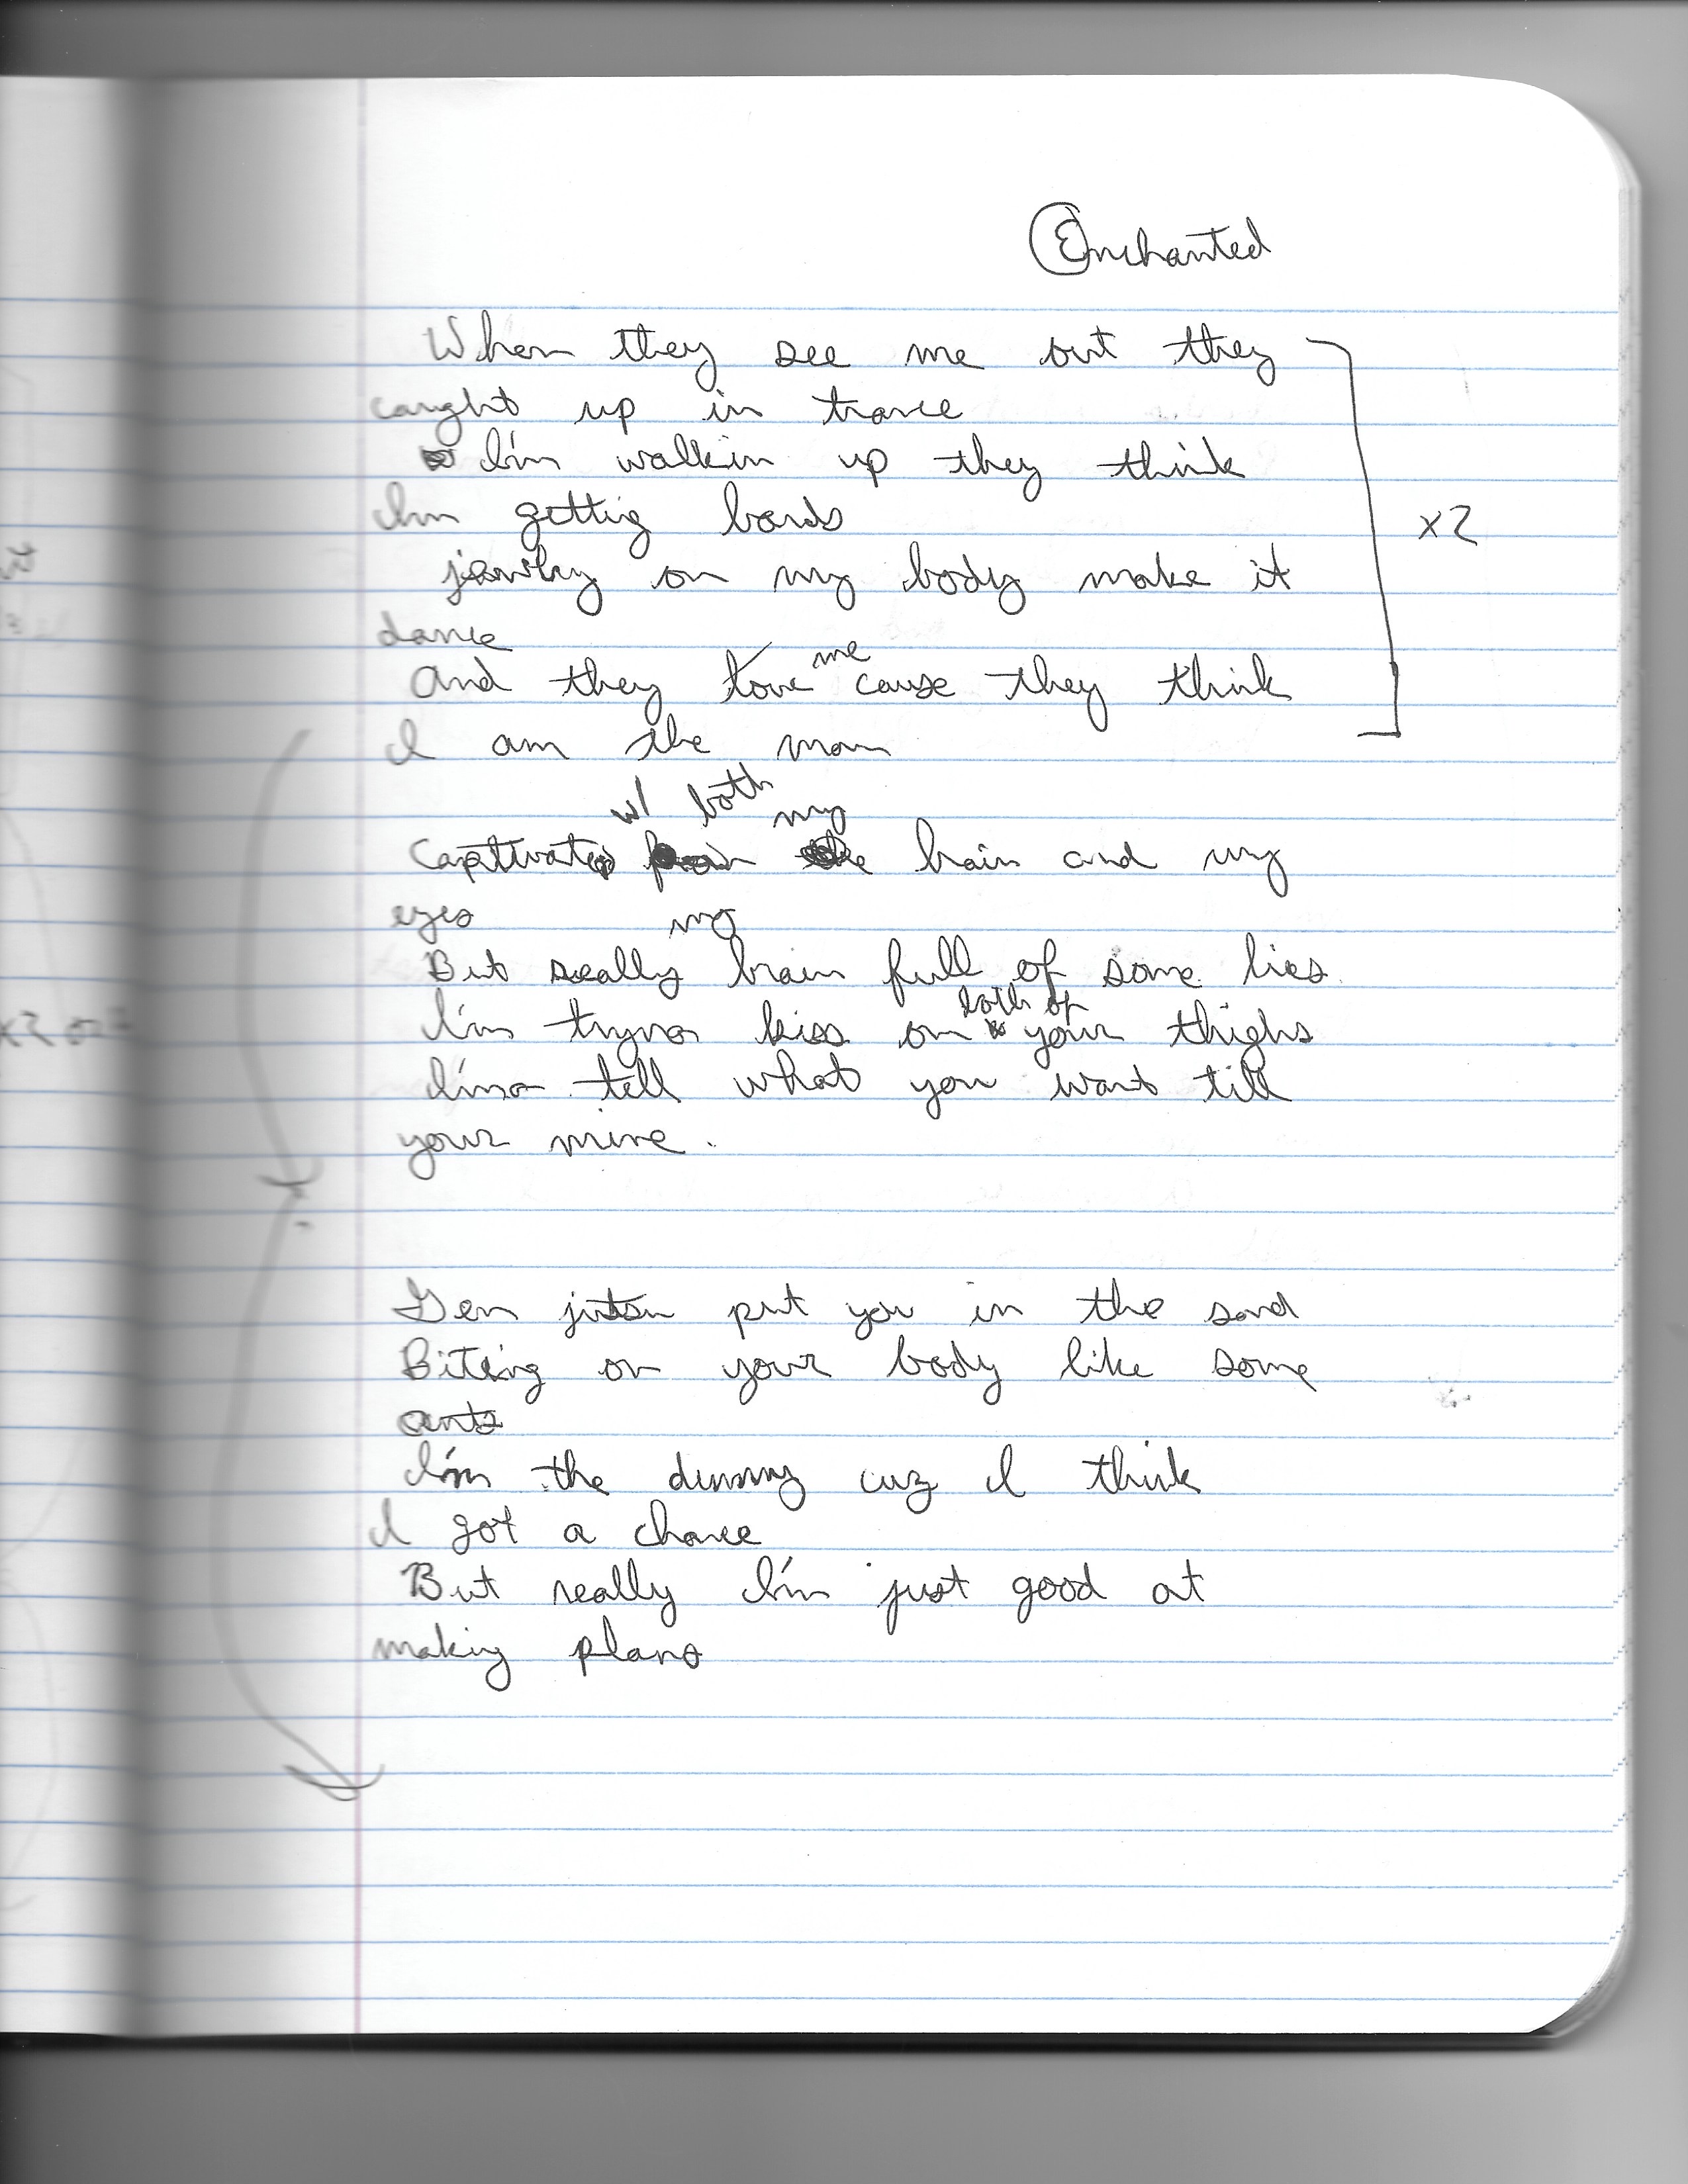 Enchanted
When they see me out they
caught up in trance
I'm walkin up they think
Im getting bands
on my body make it
dance
And they love me cause they think
I am the man
x2
w/ both my
Captivated brain and my
eyes
my
But really brain full of some lies
both of
I'm tryna kiss on your thighs
I'ma tell what you want till
your mine.
Gen jutsu put you in the sand
Biting on your body like some
ants
I'm the dummy cuz I think
I got a chance
But really I'm just good at
making plans